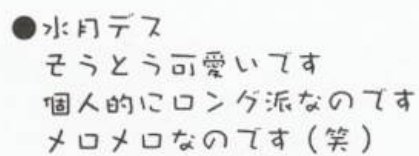 ●水月デス
そうとう可愛いです
個人的にロング派なのです
メロメロなのです(笑)